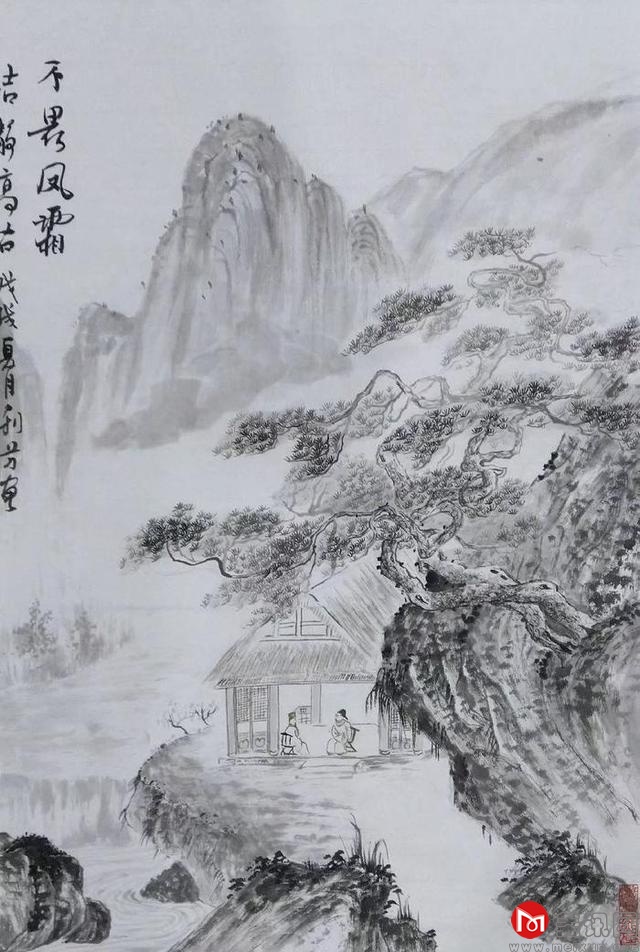 不畏风霜
洁静高古 戊戌夏月利芳画